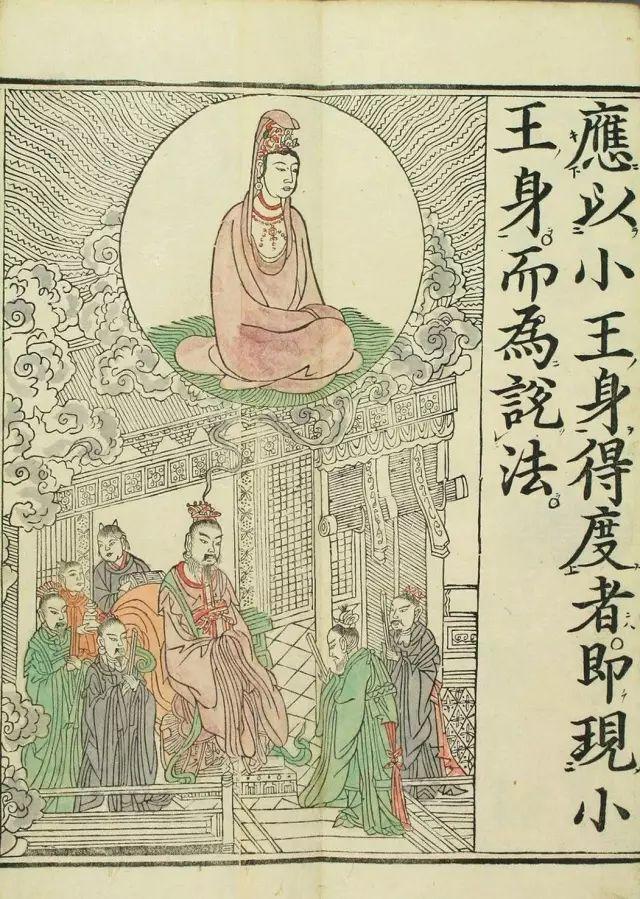 應以小王身得度者即現小
王身而為說法